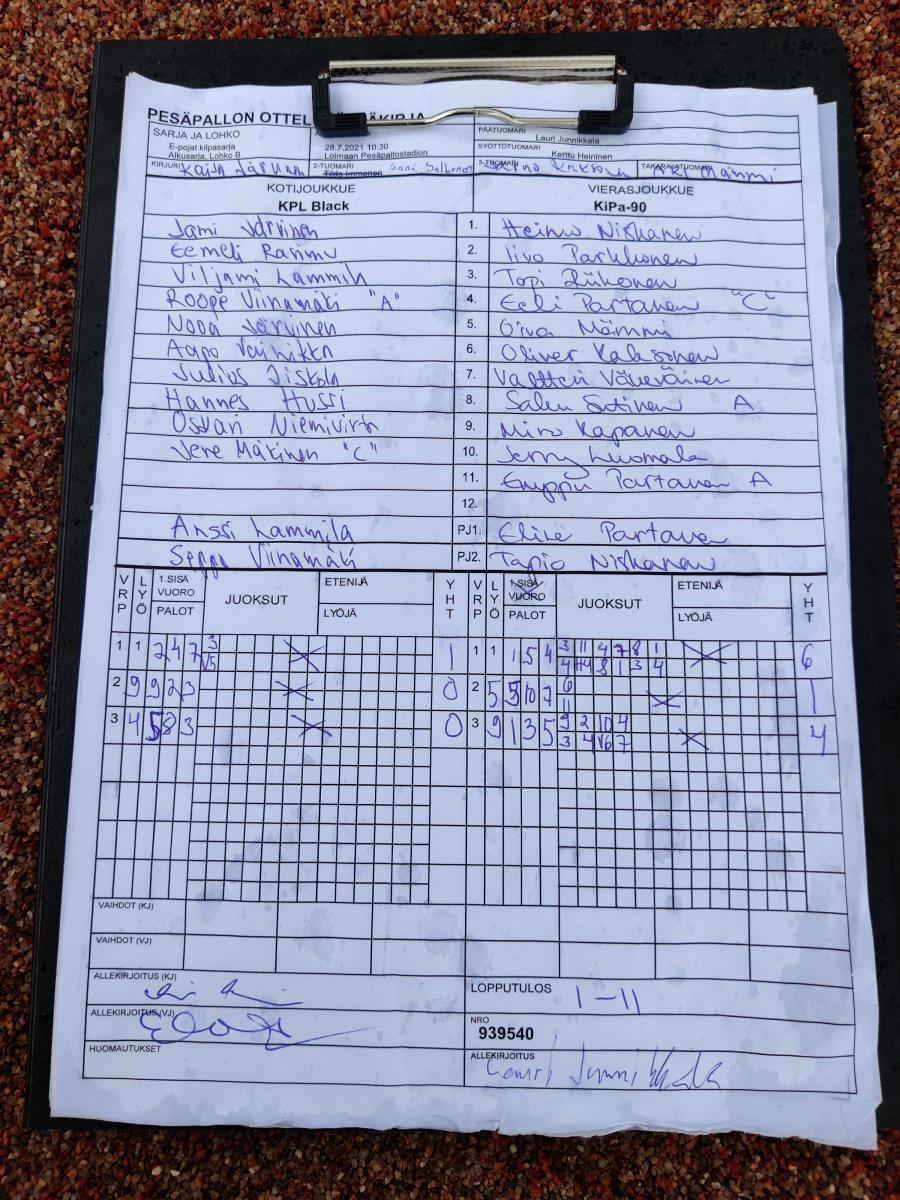 PESÄPALLON OTTEL
SARJA JA LOHKO
E-pojat kilpasarja
Alkusarja, Lohko B
28.7.2021 10:30
Loimaan Pesäpallostadion
PÄÄTUOMARI
Lauri Junnikkala
SYÖTTÖTUOMARI
Kerttu Heininen
KIRJURI Kaija Järvinen
2-TUOMARI Tilda Immonen Sani Salkonen
3-TUOMARI
TAKARAJATUOMARI Mämmi
KOTIJOUKKUE VIERASJOUKKUE
KPL Black KiPa-90
Jami Järvinen 1. Heimo Niskanen
Eemeli Rammu 2. Iivo Parkkonen
Viljami Lammila 3. Topi Riikonen
Roope Viinamäki "A" 4. Eeli Partanen "C"
Nooa Järvinen 5. Oiva Mämmi
Aapo Vainikka 6. Oliver
Julius Jiskola 7. Valtteri Väkeväinen
Hannes Hussi 8. Salen Sutinen A
Oskari Niemivirta 9. Miro Kapanen
Vere Mäkinen "C" 10. Jerry Luomala
11. Partanen A
12.
Anssi Lammila PJ1. Partanen
Seppo Viinamäki PJ2. Tapio Niskanen
VRP LYÖ 1.SISÄ VUORO PALOT JUOKSUT ETENIJÄ LYÖJÄ YHT VRP LYÖ 1.SISÄ VUORO PALOT JUOKSUT ETENIJÄ LYÖJÄ YHT
1 1 2 4 7 3 1 1 1 1 5 4 3 11 4 7 8 1 6
V5 4 H4 8 1 3 4
2 9 9 2 3 0 2 5 5 10 7 6 1
11
3 4 5 8 3 0 3 9 1 3 5 9 2 10 4 4
3 4 V6 7
VAIHDOT (KJ)
VAIHDOT (VJ)
ALLEKIRJOITUS (KJ)
LOPPUTULOS 1-11
ALLEKIRJOITUS (VJ)
NRO
939540
HUOMAUTUKSET
ALLEKIRJOITUS
Lauri Junnikkala